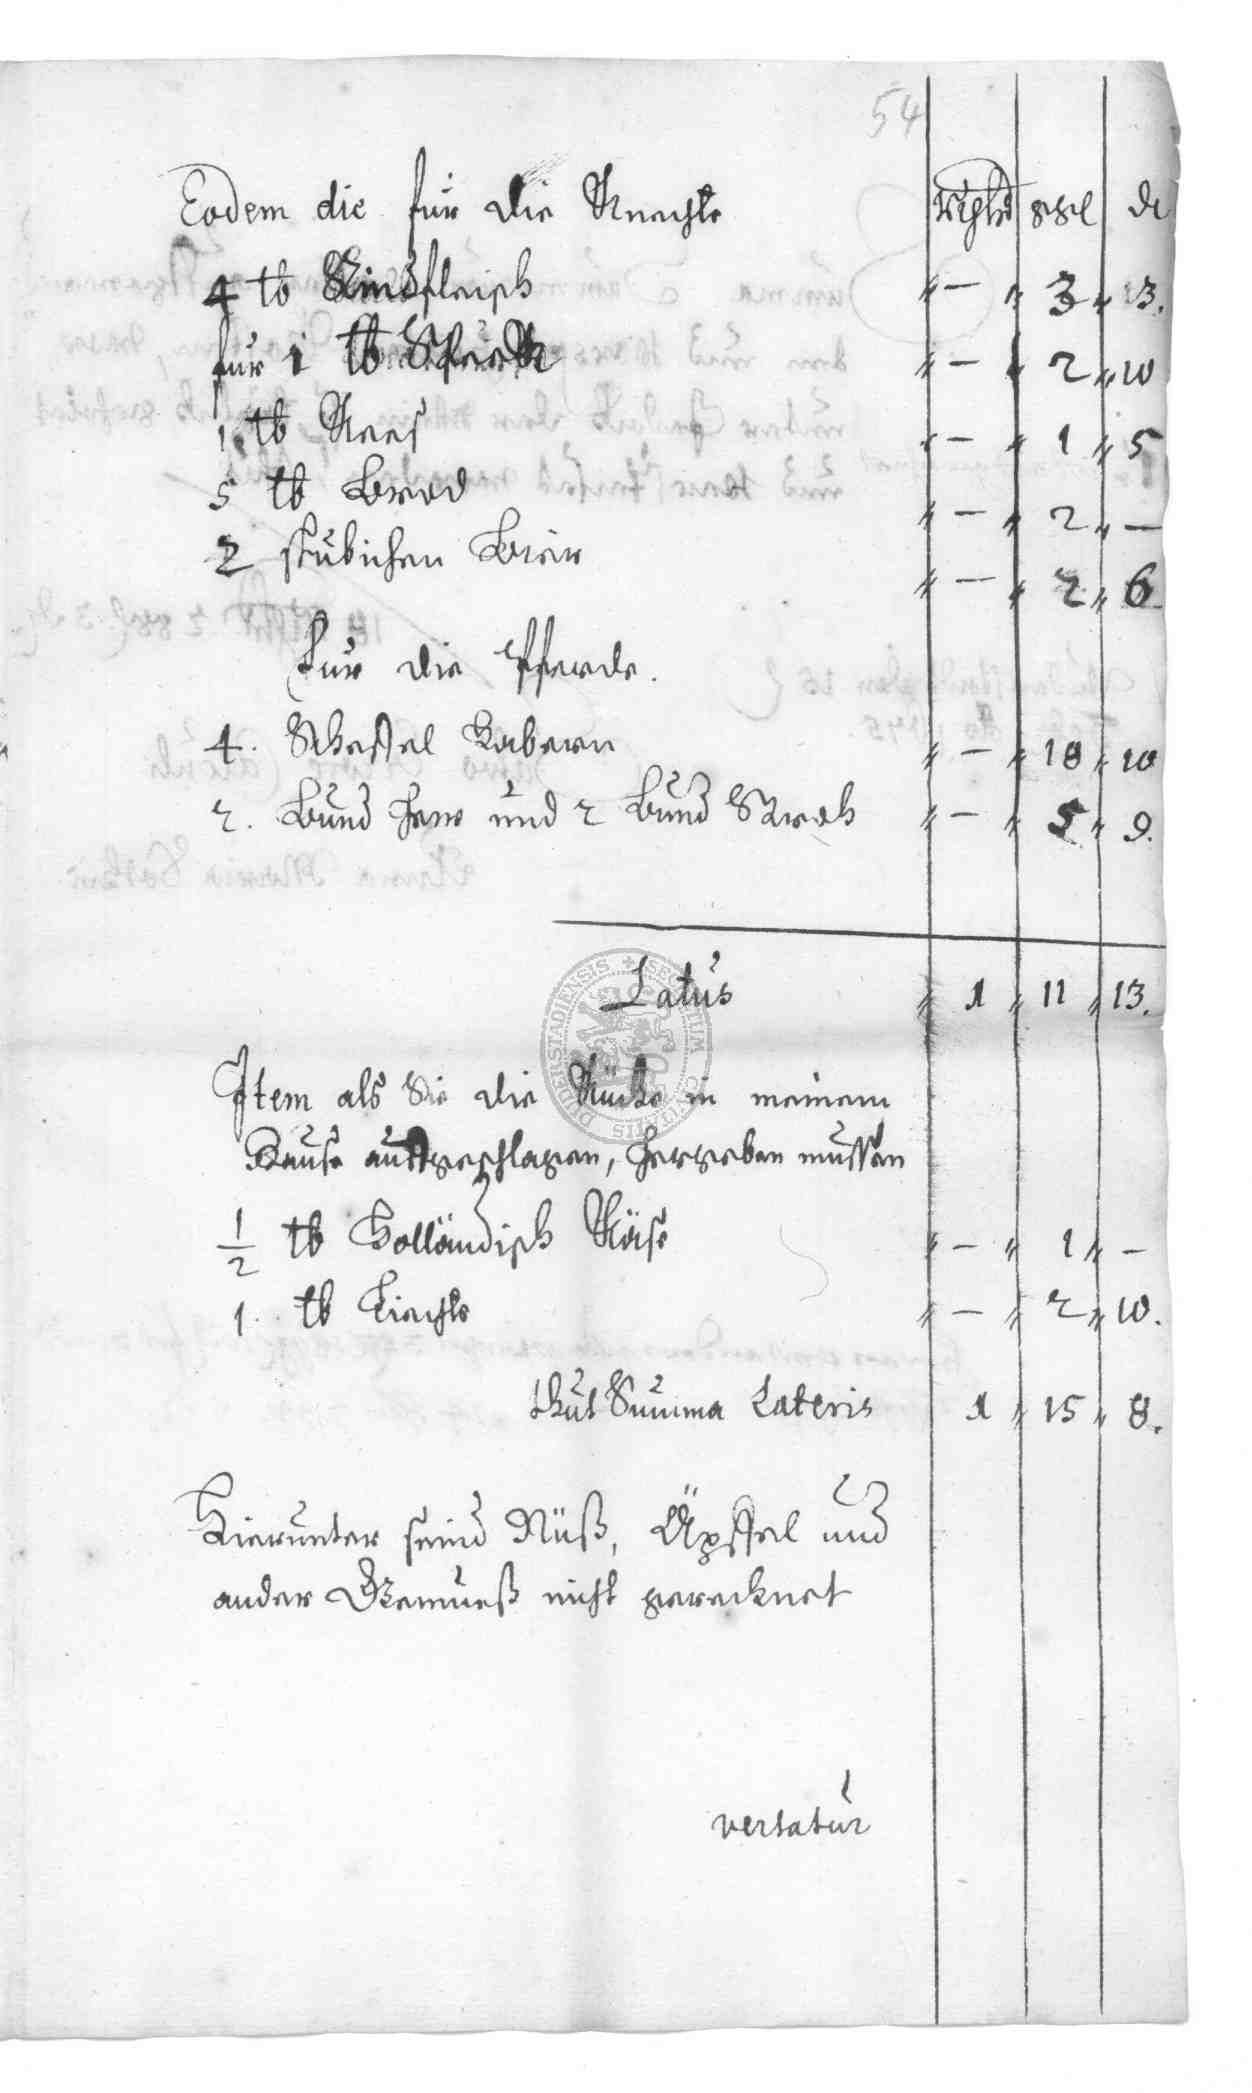 54
Eodem die für die Knechte Rthlr ggl d
4 ℔ Rindfleisch " – " 3 " 13.
für 1 ℔ Speck " – " 2 " 10
1. ℔ Kees " – " 1 " 5
5 ℔ Brod " – " 2 " –
2 stübichen Bier " – " 2 " 6
Für die Pferde.
4. Scheffel Habern " – " 18 " 10
2. Bund Hew und 2 Bund Stroh " – " 5 " 9.
Latus " 1 " 11 " 13.
Item als Sie die Stücke in meinem
Hause auffgeschlagen, hergeben müssen
1/2 ℔ Holländisch Käse " – " 1 " –
1. ℔ Liechte " – " 2 " 10.
thut Summa Lateris 1 " 15 " 8.
Hierunter seind Nüß, Äpffel und
ander Gemueß nicht gerechnet
vertatur
SECRETUM CIVITATIS DUDERSTADIENSIS